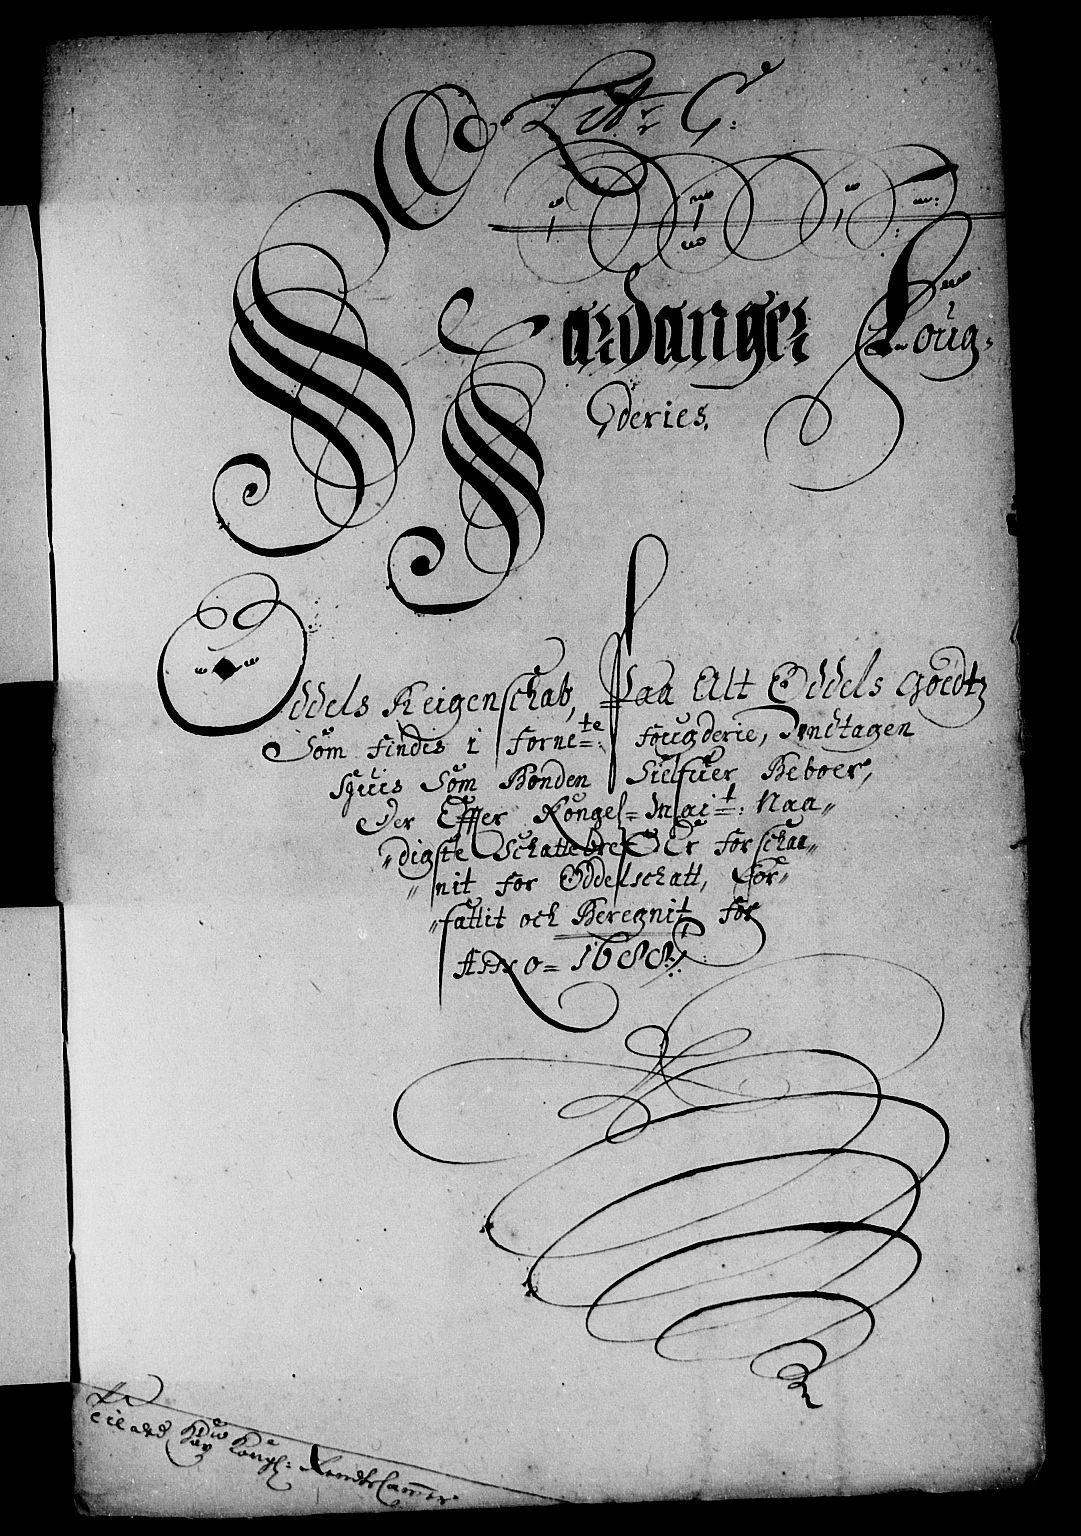 Litr G:
Hardanger Foug-
deries.
Oddels Reigenschab, Paa Alt Oddels Goedtz
Som findis i Forne:te fougderie, Undtagen
Huis Som Bonden Sielfuer Beboer,
Der Effter Kongel: Mai:t Naa„
„digste Schattebref Er forschaa„
„nit for Oddelschatt, For„
„fattit och Beregnit for
Anno = 1688:
Kongl: